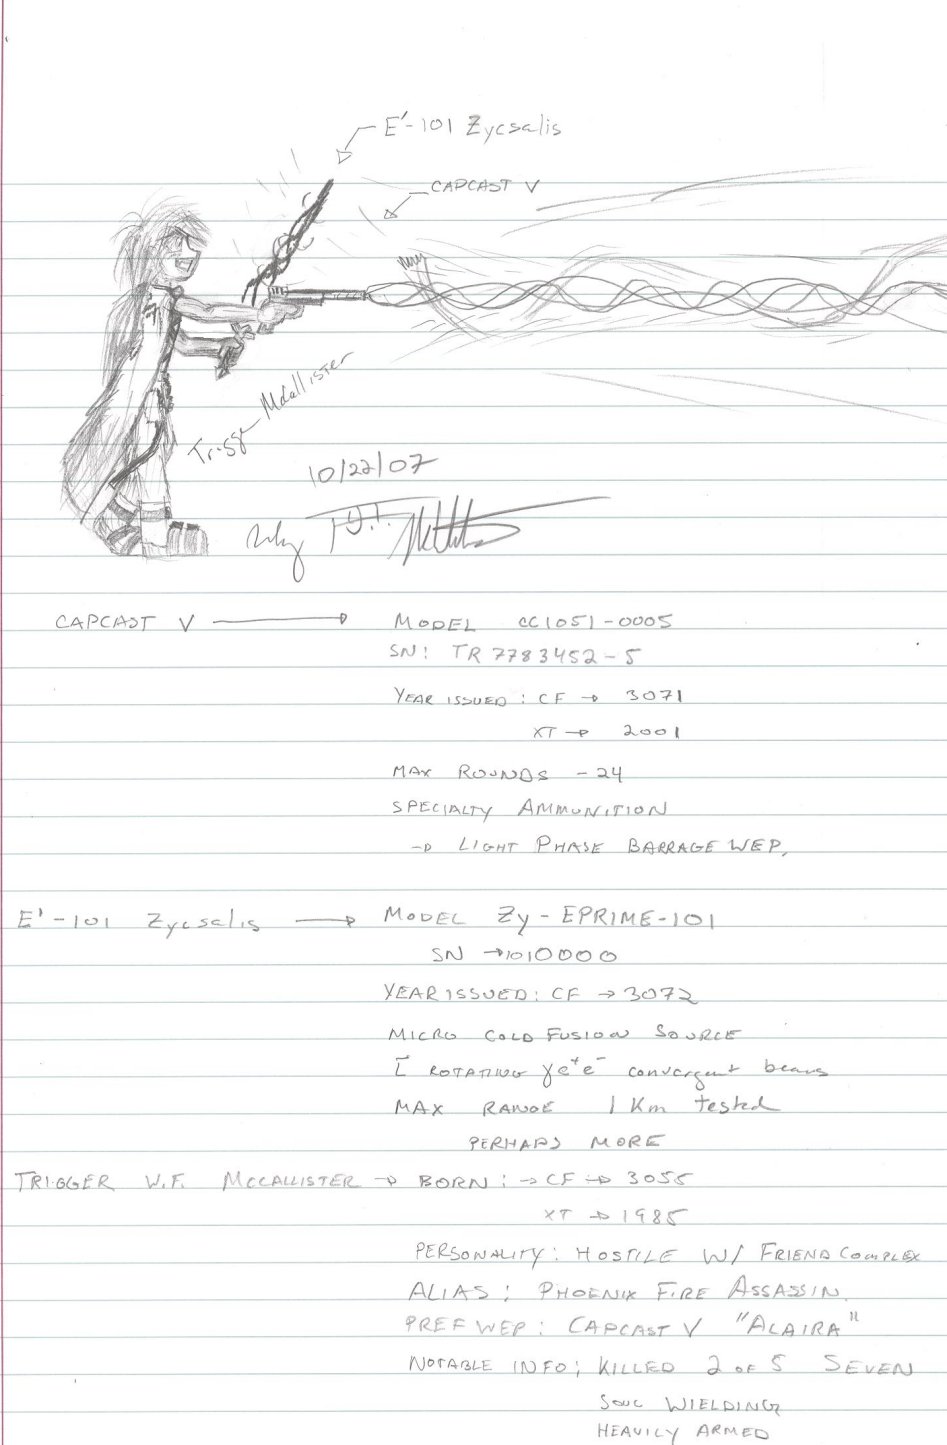 E'-101 Zycsalis
CAPCAST V
Trigger McCallister
10/22/07
CAPCAST V → MODEL CC1051-0005
SN: TR7783452-5
YEAR ISSUED: CF → 3071
XT → 2001
MAX ROUNDS - 24
SPECIALTY AMMUNITION
→ LIGHT PHASE BARRAGE WEP.
E'-101 Zycsalis → MODEL Zy-EPRIME-101
SN → 1010000
YEAR ISSUED: CF → 3072
MICRO COLD FUSION SOURCE
ROTATING γe⁺e⁻ convergent beams
MAX RANGE 1 Km tested
PERHAPS MORE
TRIGGER W.F. MCCALLISTER → BORN: → CF → 3055
XT → 1985
PERSONALITY: HOSTILE W/ FRIEND COMPLEX
ALIAS: PHOENIX FIRE ASSASSIN.
PREF WEP: CAPCAST V "ALAIRA"
NOTABLE INFO: KILLED 2 OF 5 SEVEN
SOUL WIELDING
HEAVILY ARMED